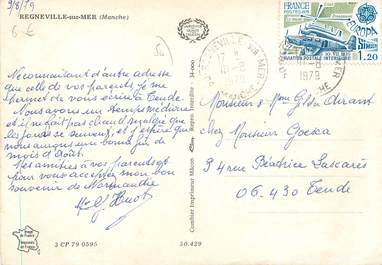 9/8/79
REGNEVILLE-sur-MER (Manche)
6 €
FRANCE
POSTES 1979
EUROPA
AVION POSTALE INTERIEURE
1.20
REGNEVILLE SUR MER
17 H
10-8
1979
MANCHE
Ne connaissant d'autre adresse
que celle de vos parents je me
permet de vous écrire à Tende.
Nous avons un temps médiocre
et il ne fait pas chaud malgré que
les jours se suivent, et j'espère que
nous aurons une bonne fin de
mois d'Août.
Mes amitiés à vos parents et
pour vous acceptez mon bon
souvenir de Normandie
Monsieur & Mme Durant
chez Monsieur
94 rue Béatrice Lascaris
06.430 Tende
Combier Imprimeur Mâcon
3 CP 79 0595
50.429